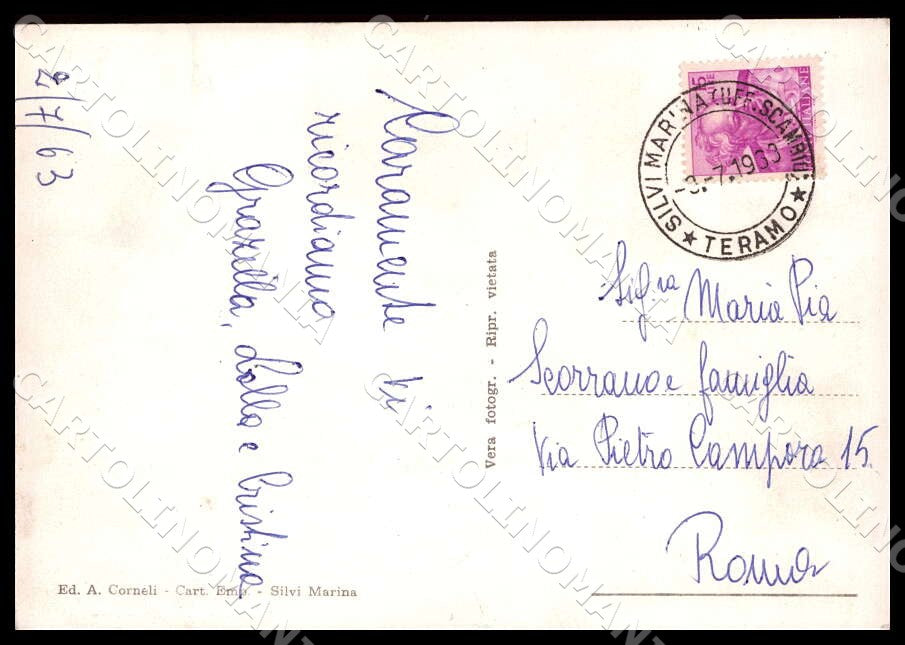 2/7/63
Caramente vi
ricordiamo
Graziella, Lalla e Cristina
Ed. A. Corneli - Cart. Emp. - Silvi Marina
Vera fotogr. - Ripr. vietata
SILVI MARINA (UFF. SCAMBIO)
-3.-7.1963
★ TERAMO ★
Sig.ra Maria Pia
Scorrano e famiglia
Via Pietro Campora 15.
Roma
CARTOLINOMANIA